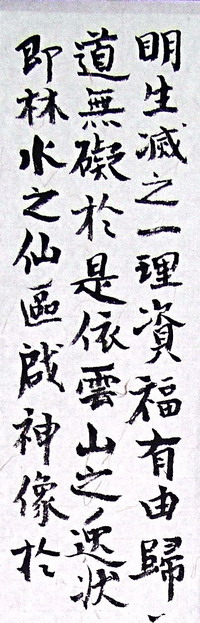 明生滅之一理資福有由歸
道無礙於是依雲山之逸状
即林水之仙區啟神像於